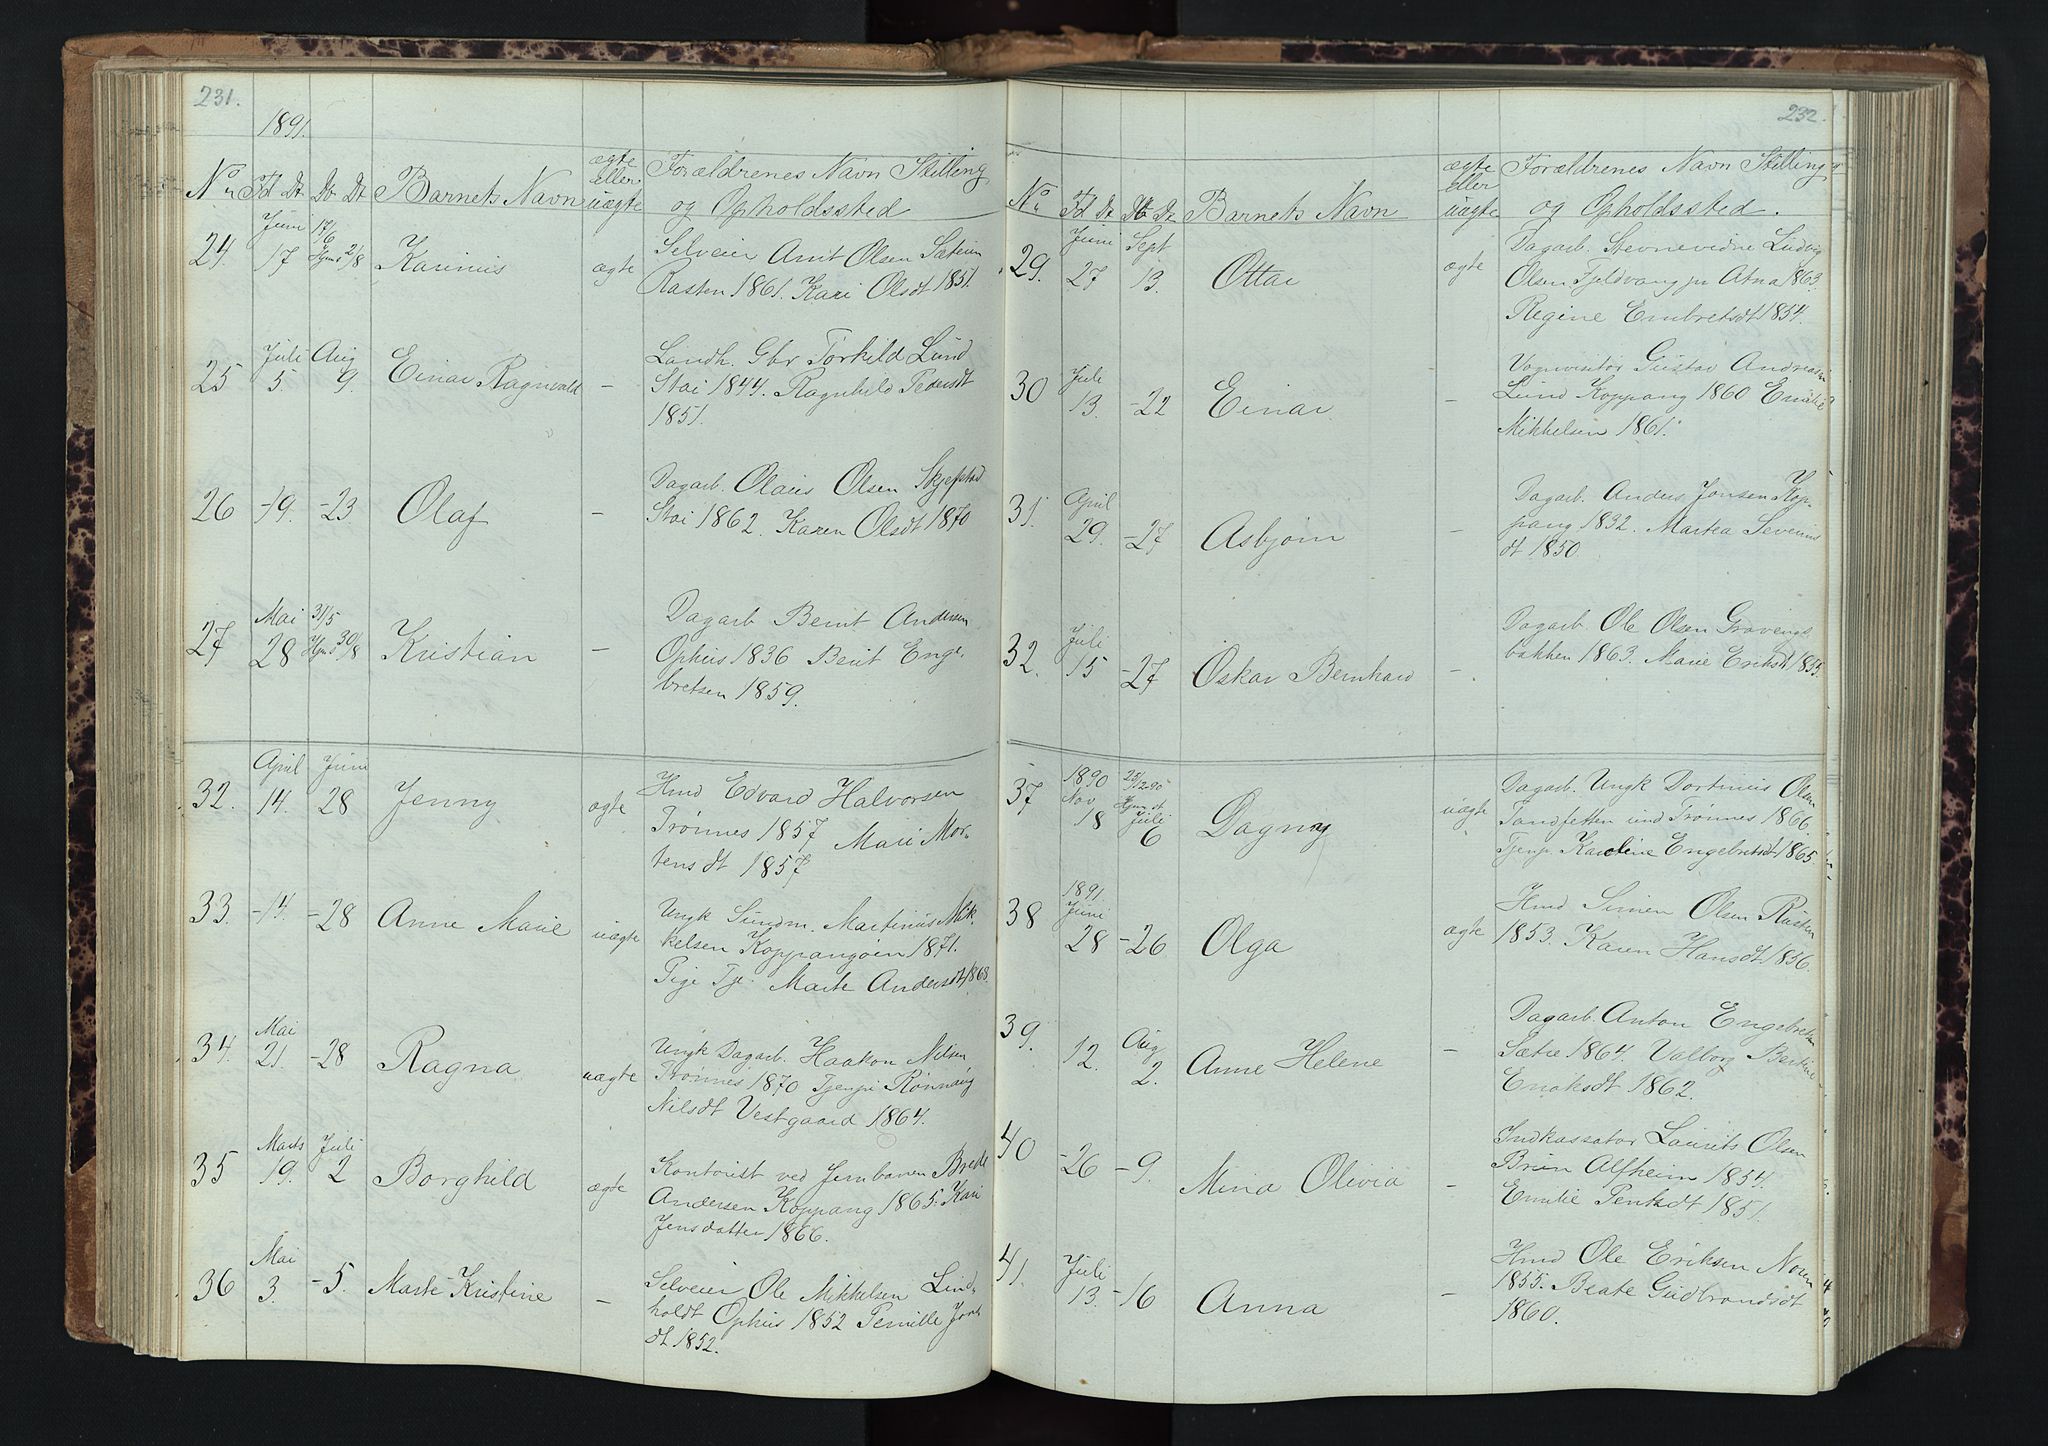 231.
1891.
No Fd Dt. Db Dt Barnets Navn ægte eller uægte Forældrenes Navn Stilling og Opholdssted
24. Juni 17 17/6 Hjmd 2/8 Karinus ægte Selveier Arnt Olsen Sæter
Rasten 1861. Kari Olsdt 1851.
25 Juli 5. Aug 9. Einar Ragnvald – Landh. Gbr Torkild Lund
Stai 1844. Ragnhild Pedersdt
1851.
26 -19. -23 Olaf – Dagarb. Olaus Olsen Skjefstad
Stai 1862. Karen Olsdt 1870
27 Mai 28 31/5 Hjmd 30/8 Kristian – Dagarb Bernt Andersen
Ophus 1836 Berit Enge-
bretsen 1859.
32. April 14. Juni 28 Jenny ægte Hmd Edvard Halvorsen
Trønnes 1857 Mari Mor-
tensdt 1857
33. -14. -28 Anne Marie uægte Ungk Sundm. Martinus Mik-
kelsen Koppangøien 1871.
Pige Tje. Marte Andersdt 1868.
34. Mai 21. -28 Ragna uægte Ungk Dagarb. Haakon Nilsen
Trønnes 1870 Tjenpi Rønnaug
Nilsdt Vestgaard 1864.
35 Marts 19. Juli 2 Borghild ægte Kontorist ved Jernbanen Brede
Andersen Koppang 1865. Kari
Jensdatter 1866.
36 Mai 3. -5. Marte Kristine – Selveier Ole Mikkelsen Lind-
holdt Ophus 1852 Pernille Jons
dt 1852.
232.
No Fd Dt Db Dt Barnets Navn ægte eller uægte Forældrenes Navn Stilling og Opholdssted.
29. Juni 27 Sept 13. Ottar ægte Dagarb. Stevnevidne Ludvig
Olsen Fjeldvang pr Atna 1863.
Regine Embretsdt 1854.
30 Juli 13. -22 Einar – Vognvisitør Gustav Andreasen
Lund Koppang 1860 Emilie
Mikkelsen 1861.
31. April 29. -27 Asbjørn – Dagarb. Anders Jonsen Kop-
pang 1832. Martea Severins
dt 1850.
32. Juli 15 -27 Oskar Bernhard – Dagarb. Ole Olsen Gravengs
bakken 1863. Marie Eriksdt 1855.
37 1890 Nov 18 25/12 90 Hjmdt Juli 6 Dagny uægte Dagarb. Ungk Dortinius Olsen
Tandsetten und Trønnes 1866.
Tjenp Karoline Engebretsdt 1865
38 1891 Juni 28 -26 Olga ægte Hmd Simen Olsen Rasten
1853. Karen Hansdt 1856.
39. 12. Aug 2. Anne Helene – Dagarb. Anton Engebretsen
Sætre 1864. Valborg Bertine
Eriksdt 1862.
40 -26 -9. Mina Olivia – Indkassator Laurits Olsen
Brun Alfheim 1854.
Emilie 1851.
41. Juli 13. -16 Anna – Hmd Ole Eriksen Noren
1855. Beate Gudbrandsdt
1860.